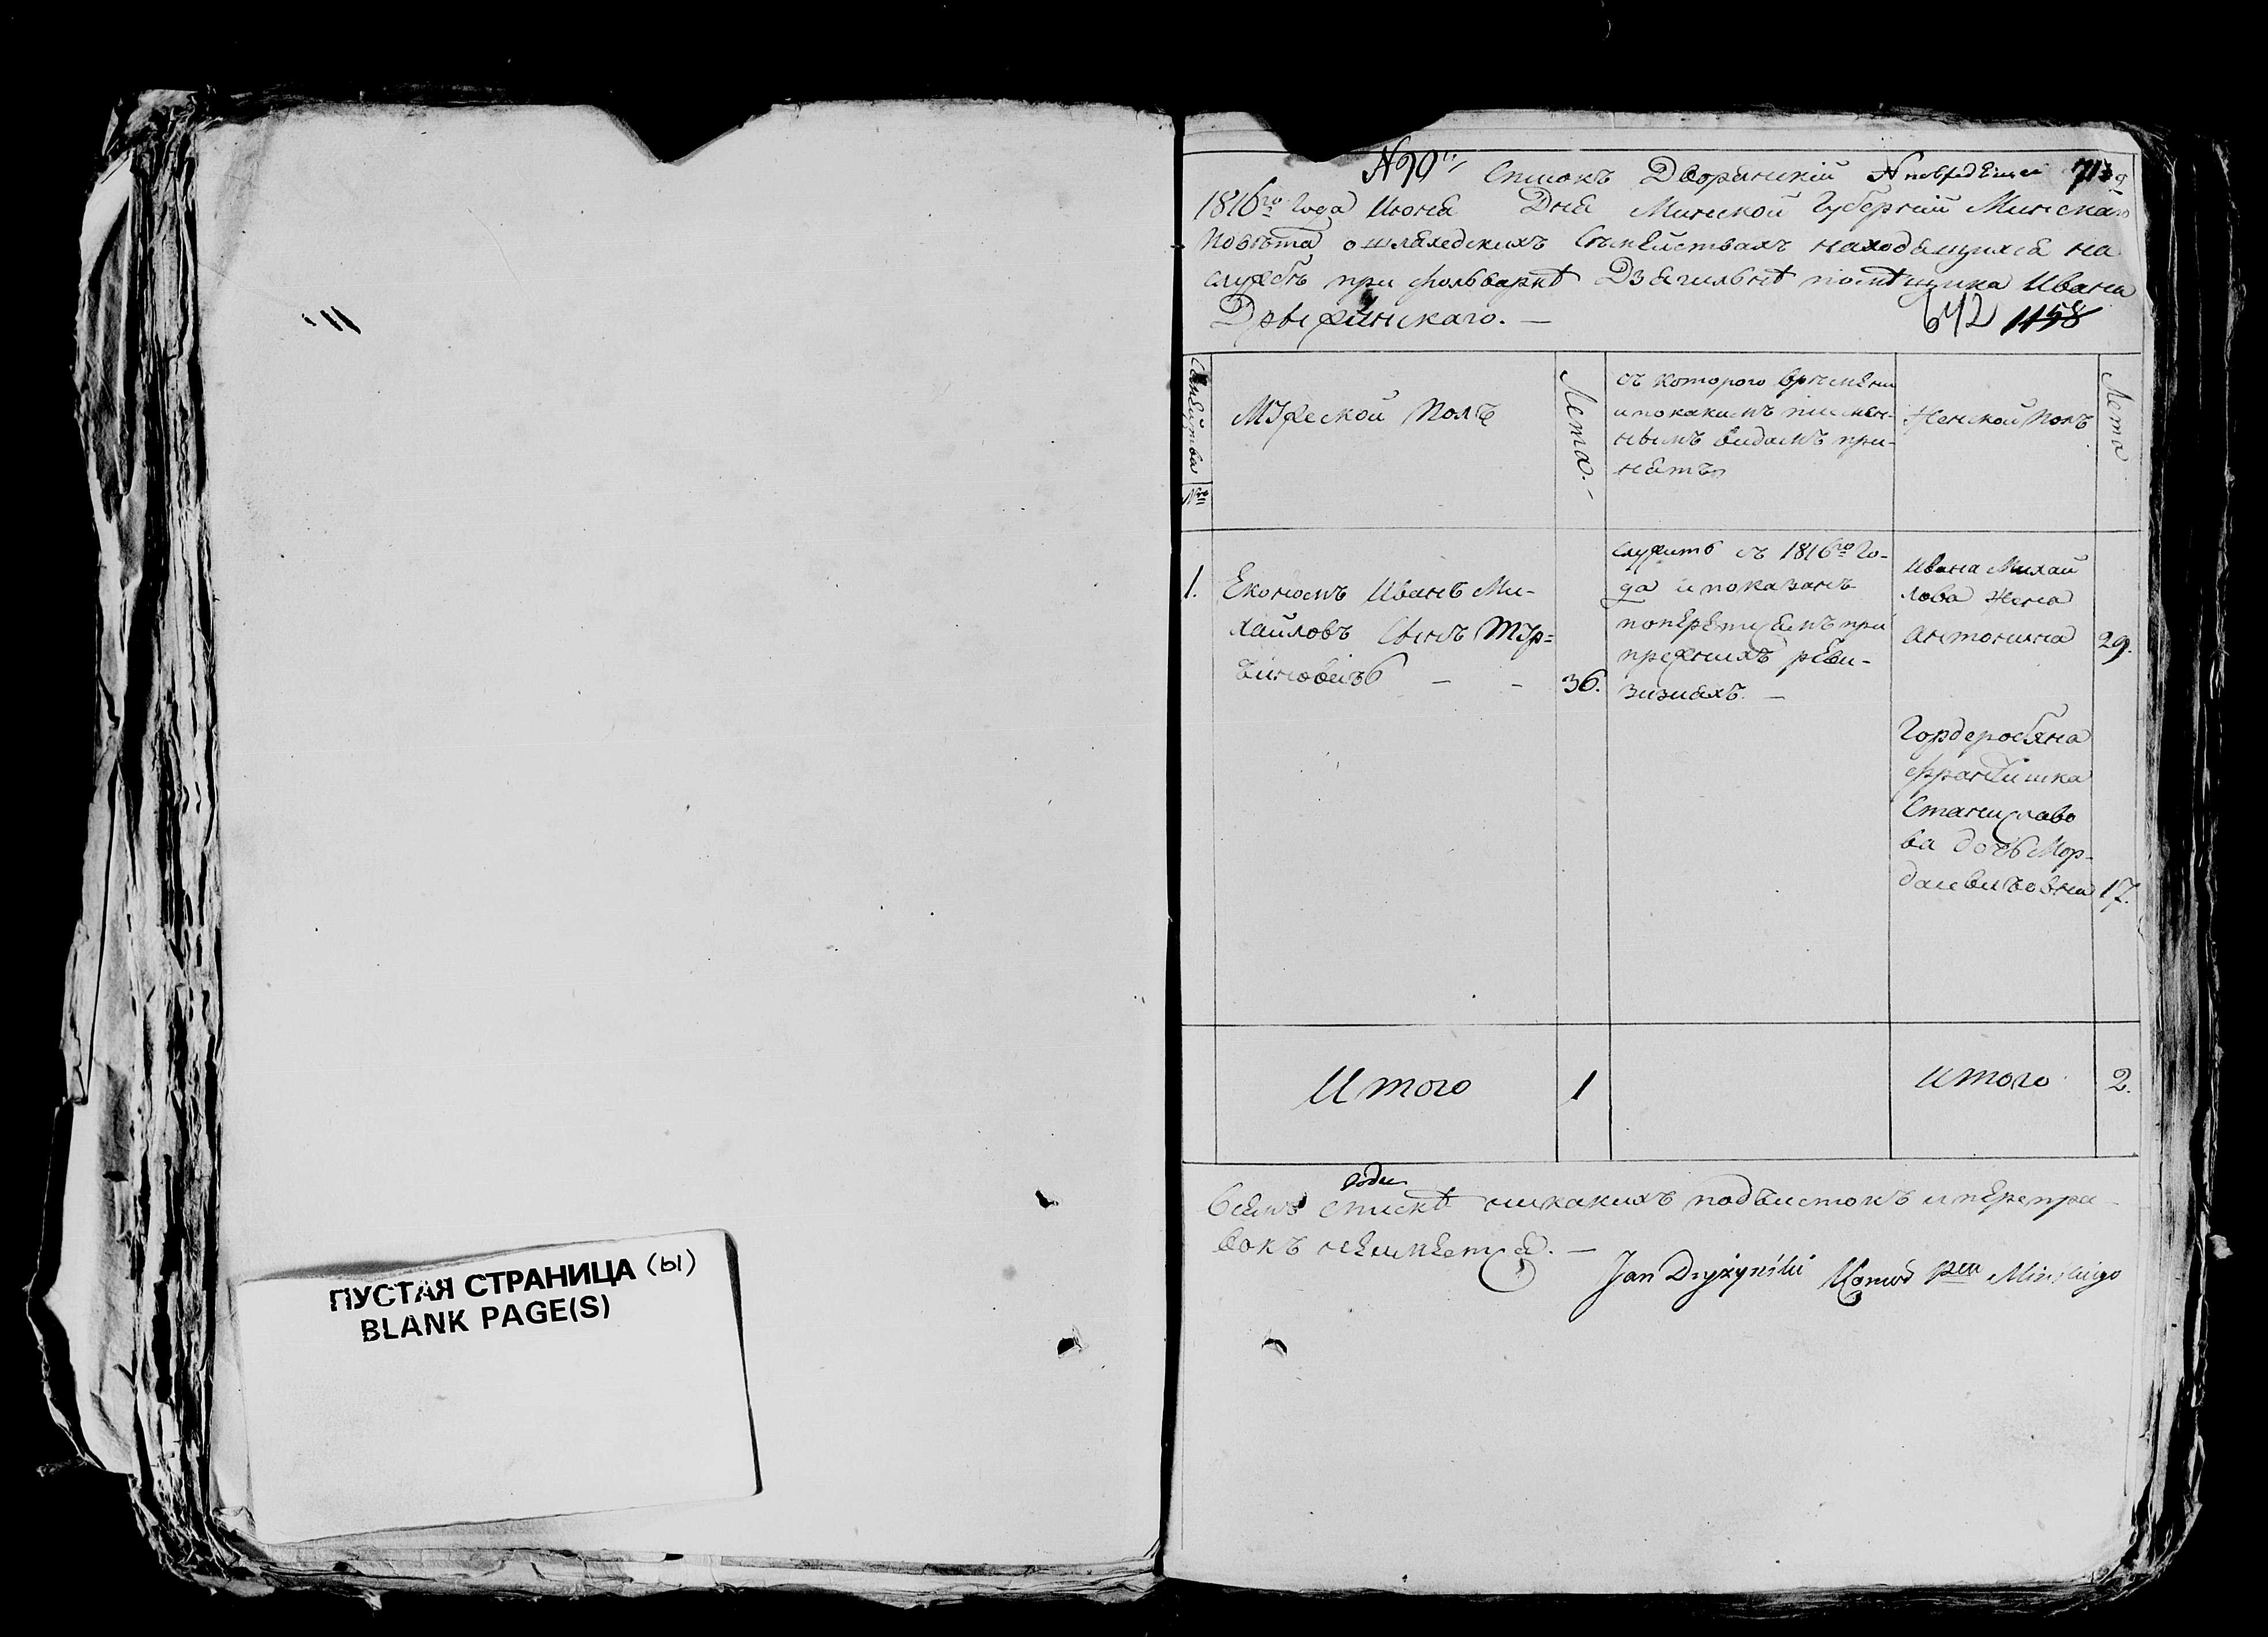 ПУСТАЯ СТРАНИЦА (ы)
BLANK PAGE(S)
N 90 Списокъ Дворянскій
1816го Года Июня Дня Минской Губерніи Минскаго
Повѣта о шляхедскихъ Съмействахъ находящихся на
службѣ при фольваркѣ Дзягильнѣ помѣщика Ивана
Дрыжинскаго. —
642 1158
Семейства
№
Мужеской Полъ
Лета. -
съ которого врѣмени
и по какимъ писмен-
нымъ видамъ при-
нятъ
Женской Полъ
Лета
1.
Економъ Иванъ Ми-
хайловъ Сынъ
36.
служитъ съ 1816го Го-
да и показанъ
при
прежнихъ реви-
зияхъ. —
Ивана Михай
лова Жена
Антонина
29.
Гордеробяна
Францишка
Станиславо
ва дочь Мор-
17.
Итого
1
Итого
2.
Всемъ списке никакихъ подчистокъ и перепра-
вокъ неимеется. —
Jan Dryżyński